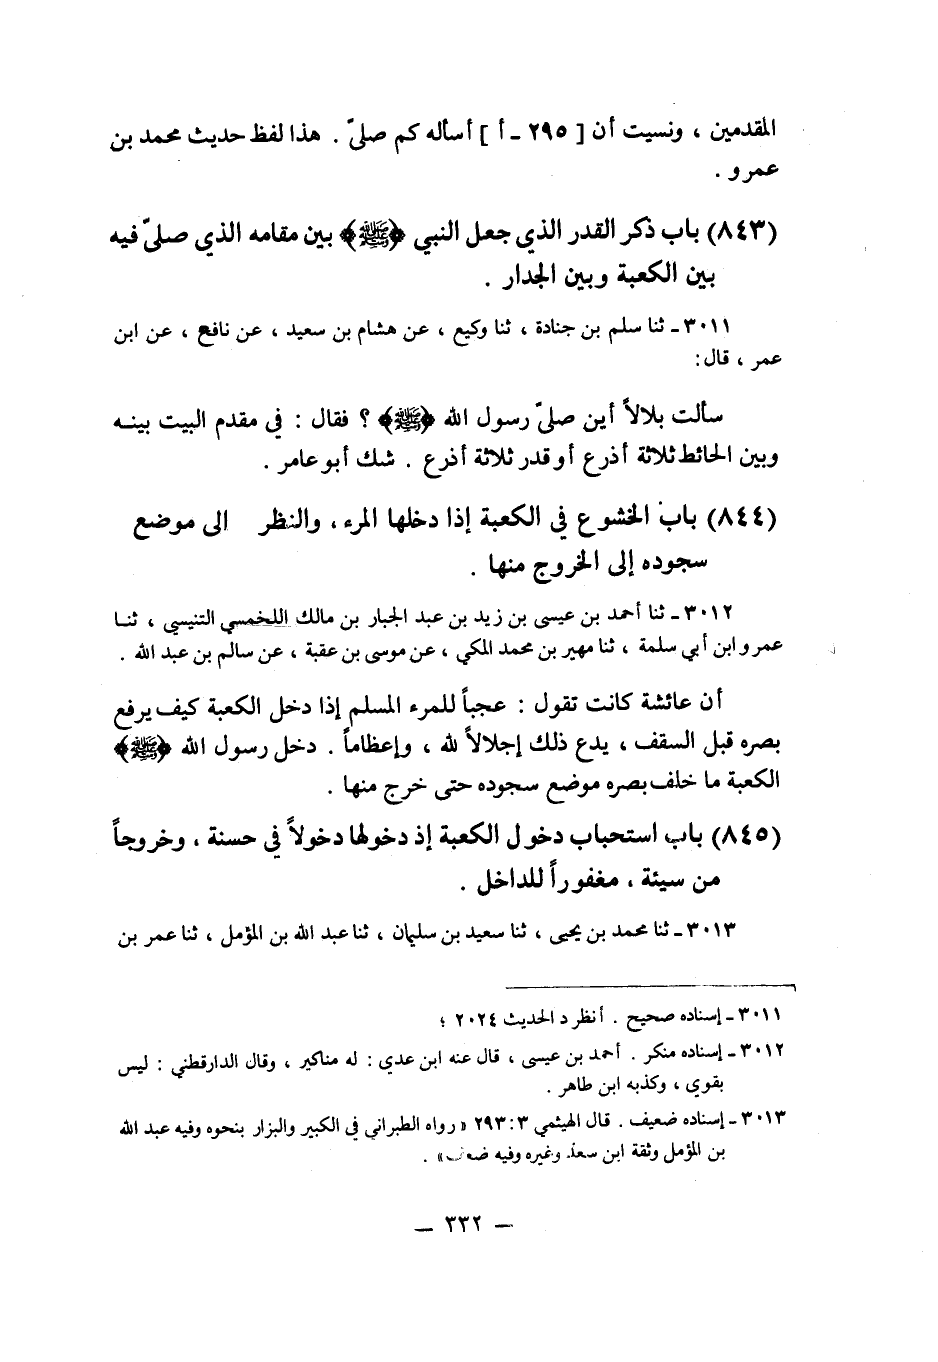 المقدمين ، ونسيت أن [ ٢٩٥ ـ أ ] أسأله كم صلىّ . هذا لفظ حديث محمد بن
عمرو .
(٨٤٣) باب ذكر القدر الذي جعل النبي ﴿ﷺ﴾ بين مقامه الذي صلىّ فيه
بين الكعبة وبين الجدار .
٣٠١١ ـ ثنا سلم بن جنادة ، ثنا وكيع ، عن هشام بن سعيد ، عن نافع ، عن ابن
عمر ، قال:
سألت بلالاً أين صلىّ رسول الله ﴿ﷺ﴾ ؟ فقال : في مقدم البيت بينه
وبين الحائط ثلاثة أذرع أو قدر ثلاثة أذرع . شك أبو عامر .
(٨٤٤) باب الخشوع في الكعبة إذا دخلها المرء ، والنظر الى موضع
سجوده إلى الخروج منها .
٣٠١٢ ـ ثنا أحمد بن عيسى بن زيد بن عبد الجبار بن مالك اللخمسي التنيسي ، ثنا
عمر و ابن أبي سلمة ، ثنا مهير بن محمد المكي ، عن موسى بن عقبة ، عن سالم بن عبد الله .
أن عائشة كانت تقول : عجباً للمرء المسلم إذا دخل الكعبة كيف يرفع
بصره قبل السقف ، يدع ذلك إجلالاً لله ، وإعظاماً . دخل رسول الله ﴿ﷺ﴾
الكعبة ما خلف بصره موضع سجوده حتى خرج منها .
(٨٤٥) باب استحباب دخول الكعبة إذ دخولها دخولاً في حسنة ، وخروجاً
من سيئة ، مغفوراً للداخل .
٣٠١٣ ـ ثنا محمد بن يحيى ، ثنا سعيد بن سليمان ، ثنا عبد الله بن المؤمل ، ثنا عمر بن
٣٠١١ ـ إسناده صحيح . أنظر د الحديث ٢٠٢٤ ؛
٣٠١٢ ـ إسناده منكر . أحمد بن عيسى ، قال عنه ابن عدي : له مناكير ، وقال الدارقطني : ليس
بقوي ، وكذبه ابن طاهر .
٣٠١٣ ـ إسناده ضعيف . قال الهيثمي ٣ : ٢٩٣ « رواه الطبراني في الكبير والبزار بنحوه وفيه عبد الله
بن المؤمل وثقة ابن سعد وغيره وفيه ضعف» .
— ٣٣٢ —